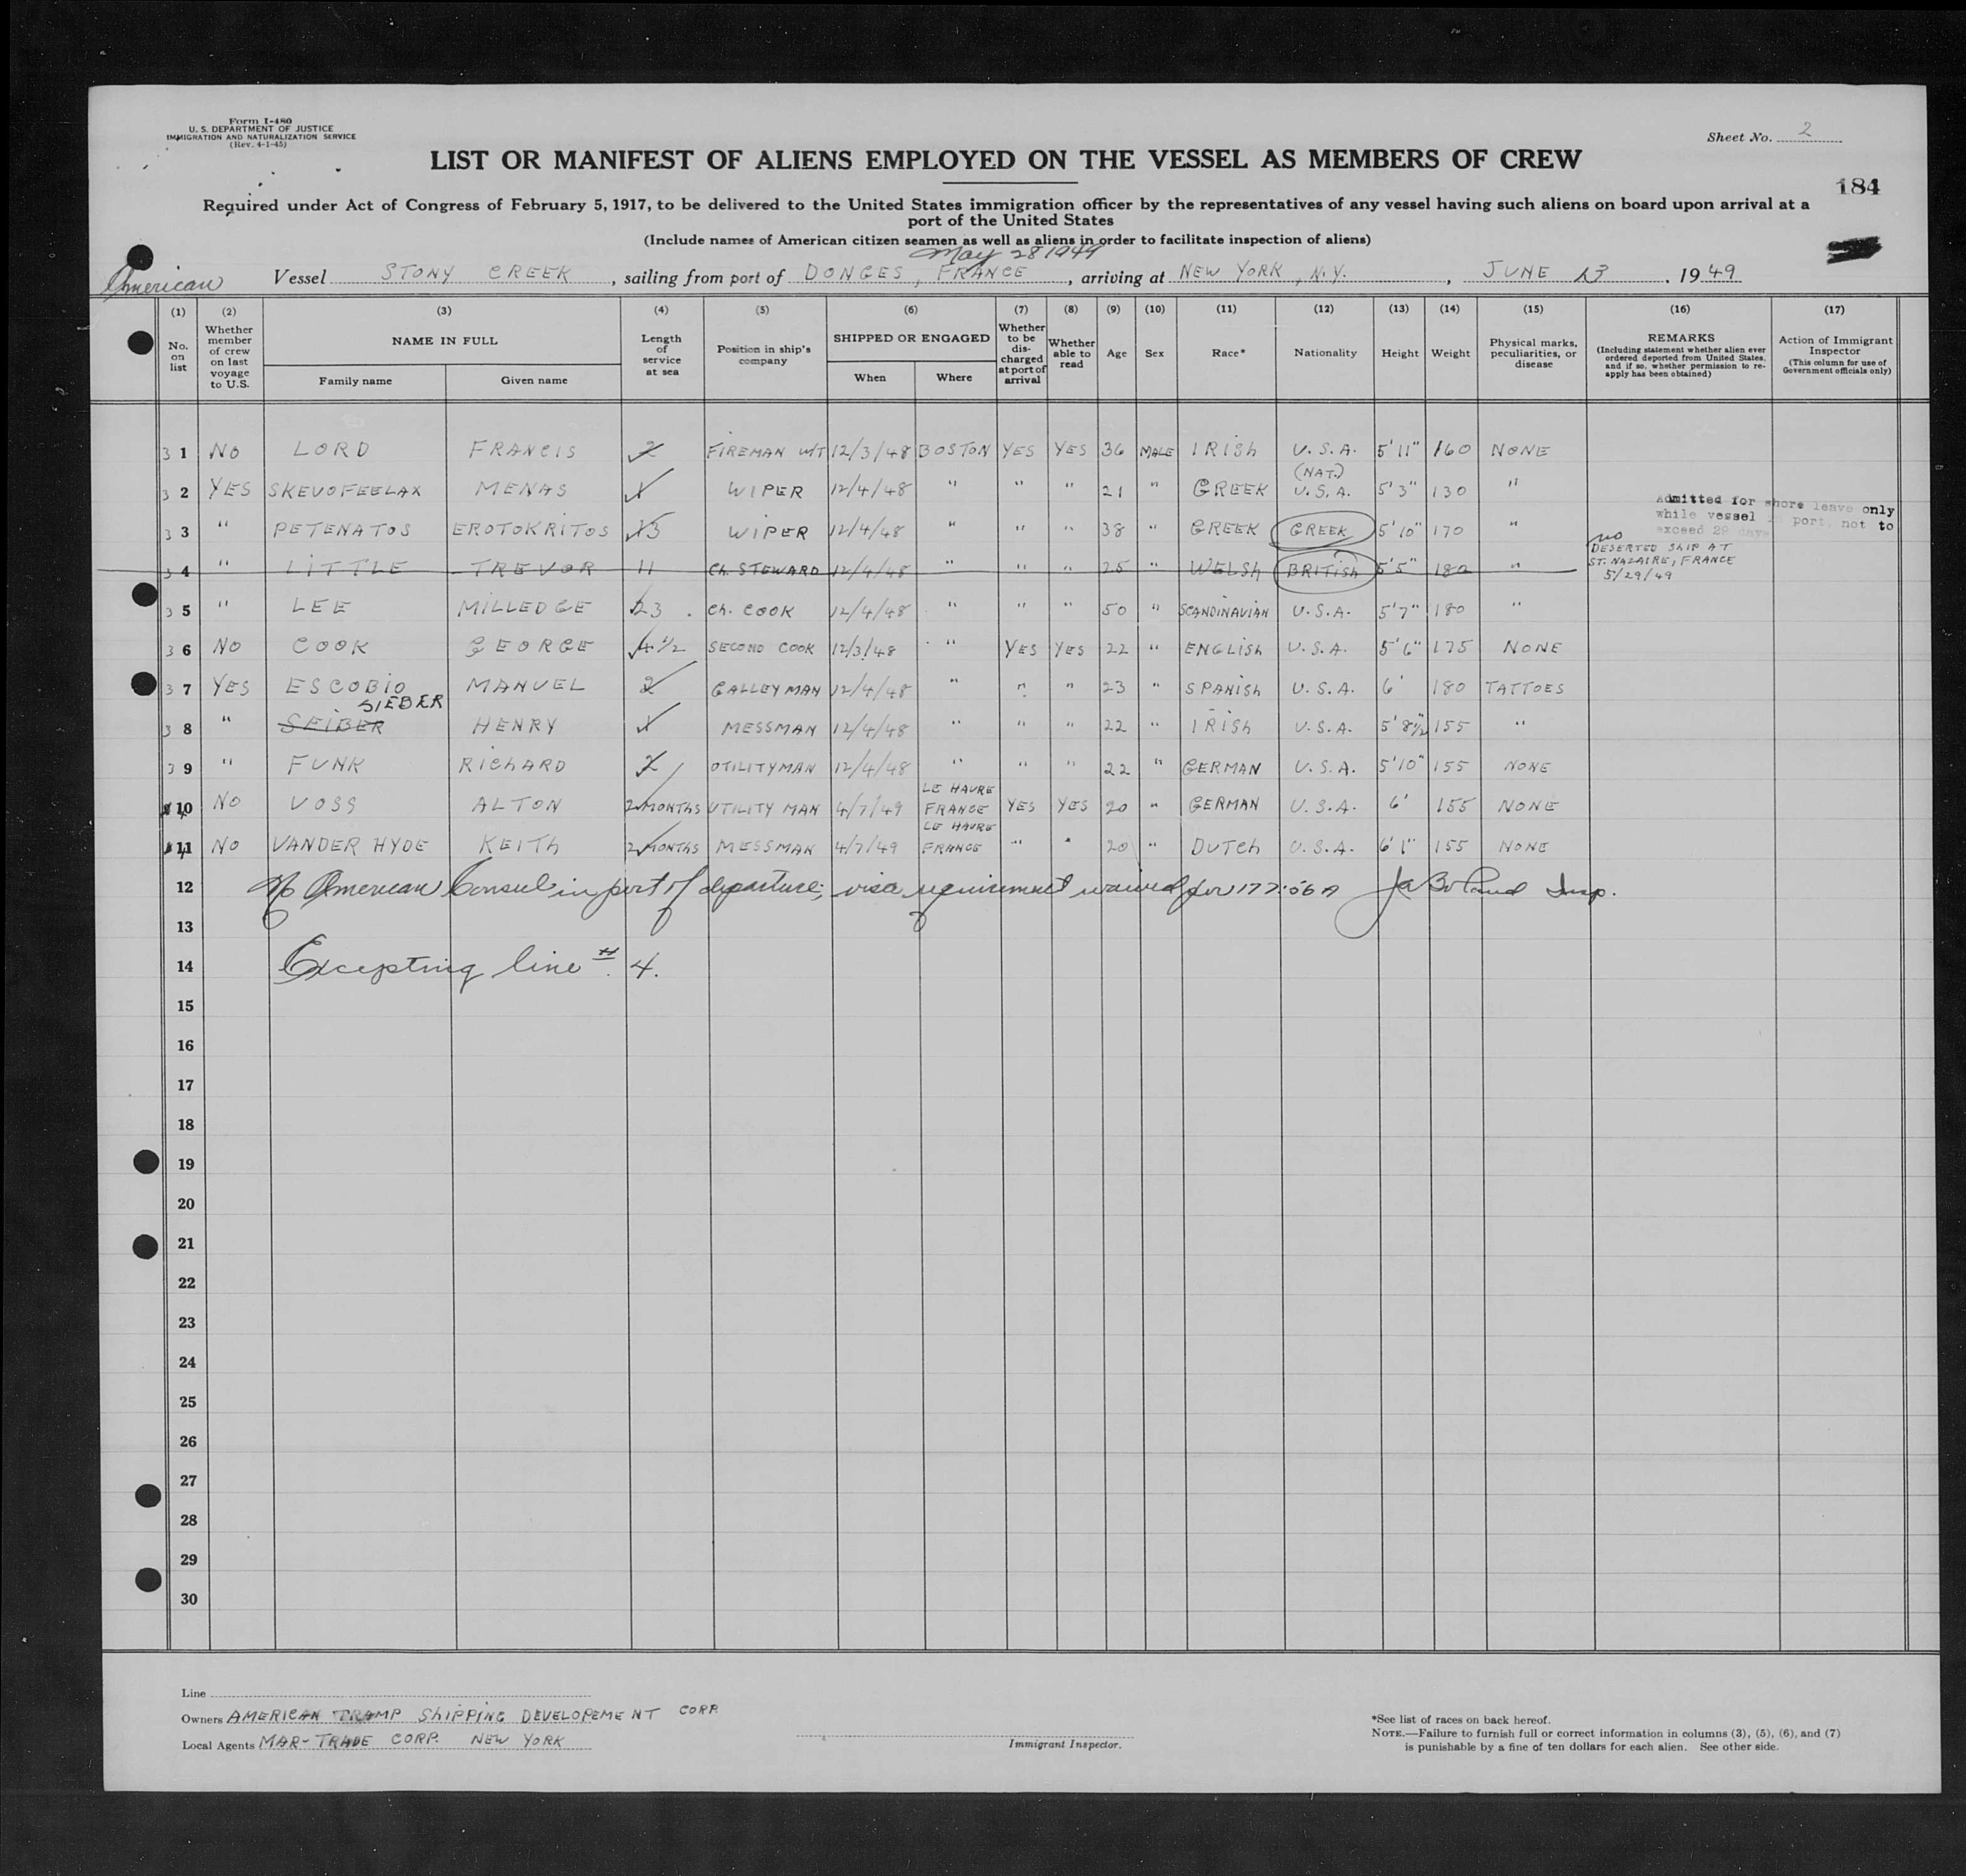 Form I-480
U. S. DEPARTMENT OF JUSTICE
IMMIGRATION AND NATURALIZATION SERVICE
(Rev. 4-1-45)
Sheet No. 2
LIST OR MANIFEST OF ALIENS EMPLOYED ON THE VESSEL AS MEMBERS OF CREW
184
Required under Act of Congress of February 5, 1917, to be delivered to the United States immigration officer by the representatives of any vessel having such aliens on board upon arrival at a
port of the United States
(Include names of American citizen seamen as well as aliens in order to facilitate inspection of aliens)
May 28 1949
American Vessel STONY CREEK, sailing from port of DONGES, FRANCE, arriving at NEW YORK, N.Y., JUNE 13, 1949
(1) (2) (3) (4) (5) (6) (7) (8) (9) (10) (11) (12) (13) (14) (15) (16) (17)
No. on list
Whether member of crew on last voyage to U.S.
NAME IN FULL
Family name
Given name
Length of service at sea
Position in ship's company
SHIPPED OR ENGAGED
When
Where
Whether to be discharged at port of arrival
Whether able to read
Age
Sex
Race*
Nationality
Height
Weight
Physical marks, peculiarities, or disease
REMARKS
(Including statement whether alien ever ordered deported from United States, and if so, whether permission to re-apply has been obtained)
Action of Immigrant Inspector
(This column for use of Government officials only)
3 1 NO LORD FRANCIS 2 FIREMAN W/T 12/3/48 BOSTON YES YES 36 MALE IRISH U.S.A. 5'11" 160 NONE
3 2 YES SKEVOFEELAX MENAS 1 WIPER 12/4/48 " " " 21 " GREEK (NAT.) U.S.A. 5'3" 130 "
3 3 " PETENATOS EROTOKRITOS 13 WIPER 12/4/48 " " " 38 " GREEK GREEK 5'10" 170 "
Admitted for shore leave only
while vessel in port, not to
exceed 29 days
3 4 " LITTLE TREVOR 11 CH. STEWARD 12/4/48 " " " 25 " WELSH BRITISH 5'5" 182 "
no
DESERTED SHIP AT
ST. NAZAIRE, FRANCE
5/29/49
3 5 " LEE MILLEDGE 23 CH. COOK 12/4/48 " " " 50 " SCANDINAVIAN U.S.A. 5'7" 180 "
3 6 NO COOK GEORGE 4 1/2 SECOND COOK 12/3/48 " YES YES 22 " ENGLISH U.S.A. 5'6" 175 NONE
3 7 YES ESCOBIO MANUEL 2 GALLEYMAN 12/4/48 " " " 23 " SPANISH U.S.A. 6' 180 TATTOES
SIEBER
3 8 " SEIBER HENRY 1 MESSMAN 12/4/48 " " " 22 " IRISH U.S.A. 5'8½" 155 "
3 9 " FUNK RICHARD 2 UTILITYMAN 12/4/48 " " " 22 " GERMAN U.S.A. 5'10" 155 NONE
10 NO VOSS ALTON 2 MONTHS UTILITY MAN 4/7/49 LE HAVRE FRANCE YES YES 20 " GERMAN U.S.A. 6' 155 NONE
11 NO VANDER HYDE KEITH 2 MONTHS MESSMAN 4/7/49 LE HAVRE FRANCE " " 20 " DUTCH U.S.A. 6'1" 155 NONE
12 No American Consul in port of departure; visa requirement waived Insp.
13
14 Excepting line # 4.
15
16
17
18
19
20
21
22
23
24
25
26
27
28
29
30
Line
Owners AMERICAN TRAMP SHIPPING DEVELOPEMENT CORP.
Local Agents MAR-TRADE CORP. NEW YORK
Immigrant Inspector.
*See list of races on back hereof.
NOTE.—Failure to furnish full or correct information in columns (3), (5), (6), and (7)
is punishable by a fine of ten dollars for each alien. See other side.